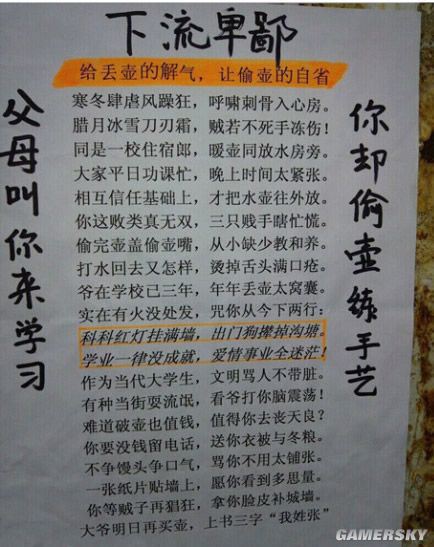 下流卑鄙
给丢壶的解气，让偷壶的自省
父母叫你来学习
你却偷壶练手艺
寒冬肆虐风躁狂，呼啸刺骨入心房。
腊月冰雪刀刃霜，贼若不死手冻伤！
同是一校住宿郎，暖壶同放水房旁。
大家平日功课忙，晚上时间太紧张。
相互信任基础上，才把水壶往外放。
你这败类真无双，三只贱手瞎忙慌。
偷完壶盖偷壶嘴，从小缺少教和养。
打水回去又怎样，烫掉舌头满口疮。
爷在学校已三年，年年丢壶太窝囊。
实在有火没处发，咒你从今下两行：
科科红灯挂满墙，出门狗撵掉沟塘。
学业一律没成就，爱情事业全迷茫！
作为当代大学生，文明骂人不带脏。
有种当街耍流氓，看爷打你脑震荡！
难道破壶也值钱，值得你去丧天良？
你要没钱留电话，送你衣被与冬粮。
不争馒头争口气，骂你不用太铺张。
一张纸片贴墙上，愿你看到多思量。
你等贼子再猖狂，拿你脸皮补城墙。
大爷明日再买壶，上书三字“我姓张”
GAMERSKY